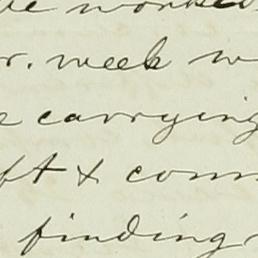 worked
r. week
carrying
ft & com
finding